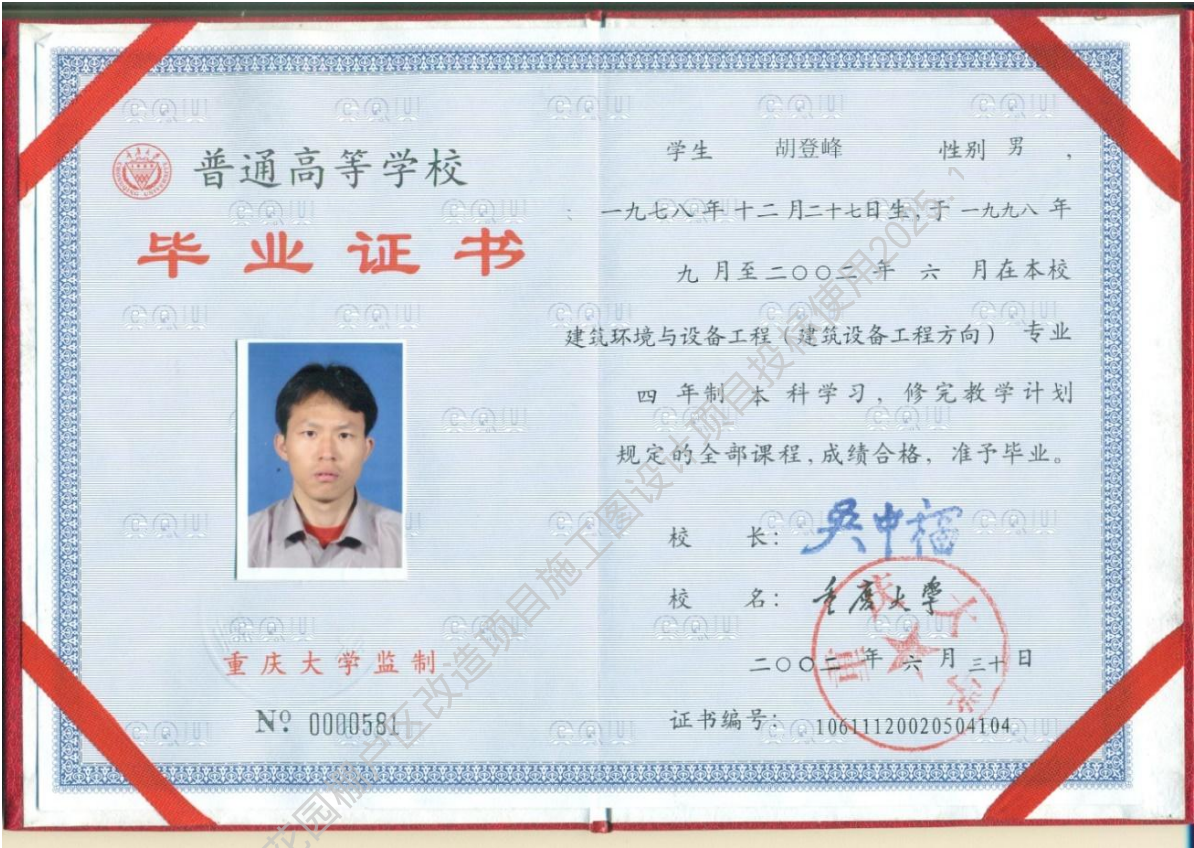 普通高等学校
毕业证书
重庆大学监制
Nº 0000581
学生 胡登峰 性别 男 ,
一九七八年十二月二十七日生,于一九九八年
九月至二〇〇二年六月在本校
建筑环境与设备工程(建筑设备工程方向) 专业
四年制本科学习,修完教学计划
规定的全部课程,成绩合格,准予毕业。
校长: 吴中福
校名: 重庆大学
二〇〇二年六月三十日
证书编号: 10611120020504104
重庆大学
CQU
花园棚户区改造项目施工图设计项目投标使用2025.1